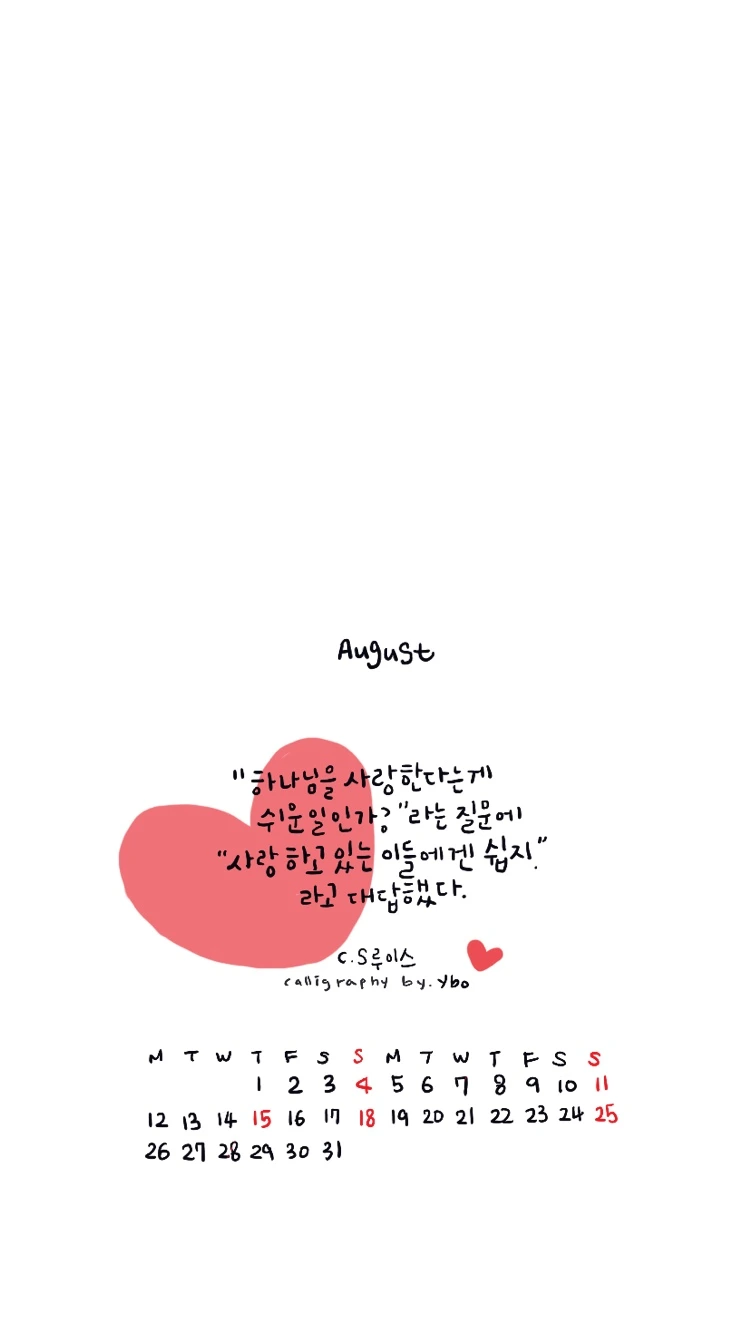 August
"하나님을 사랑한다는게
쉬운일인가?"라는 질문에
"사랑하고 있는 이들에겐 쉽지."
라고 대답했다.
C.S루이스
calligraphy by. ybo
M T W T F S S M T W T F S S
1 2 3 4 5 6 7 8 9 10 11
12 13 14 15 16 17 18 19 20 21 22 23 24 25
26 27 28 29 30 31